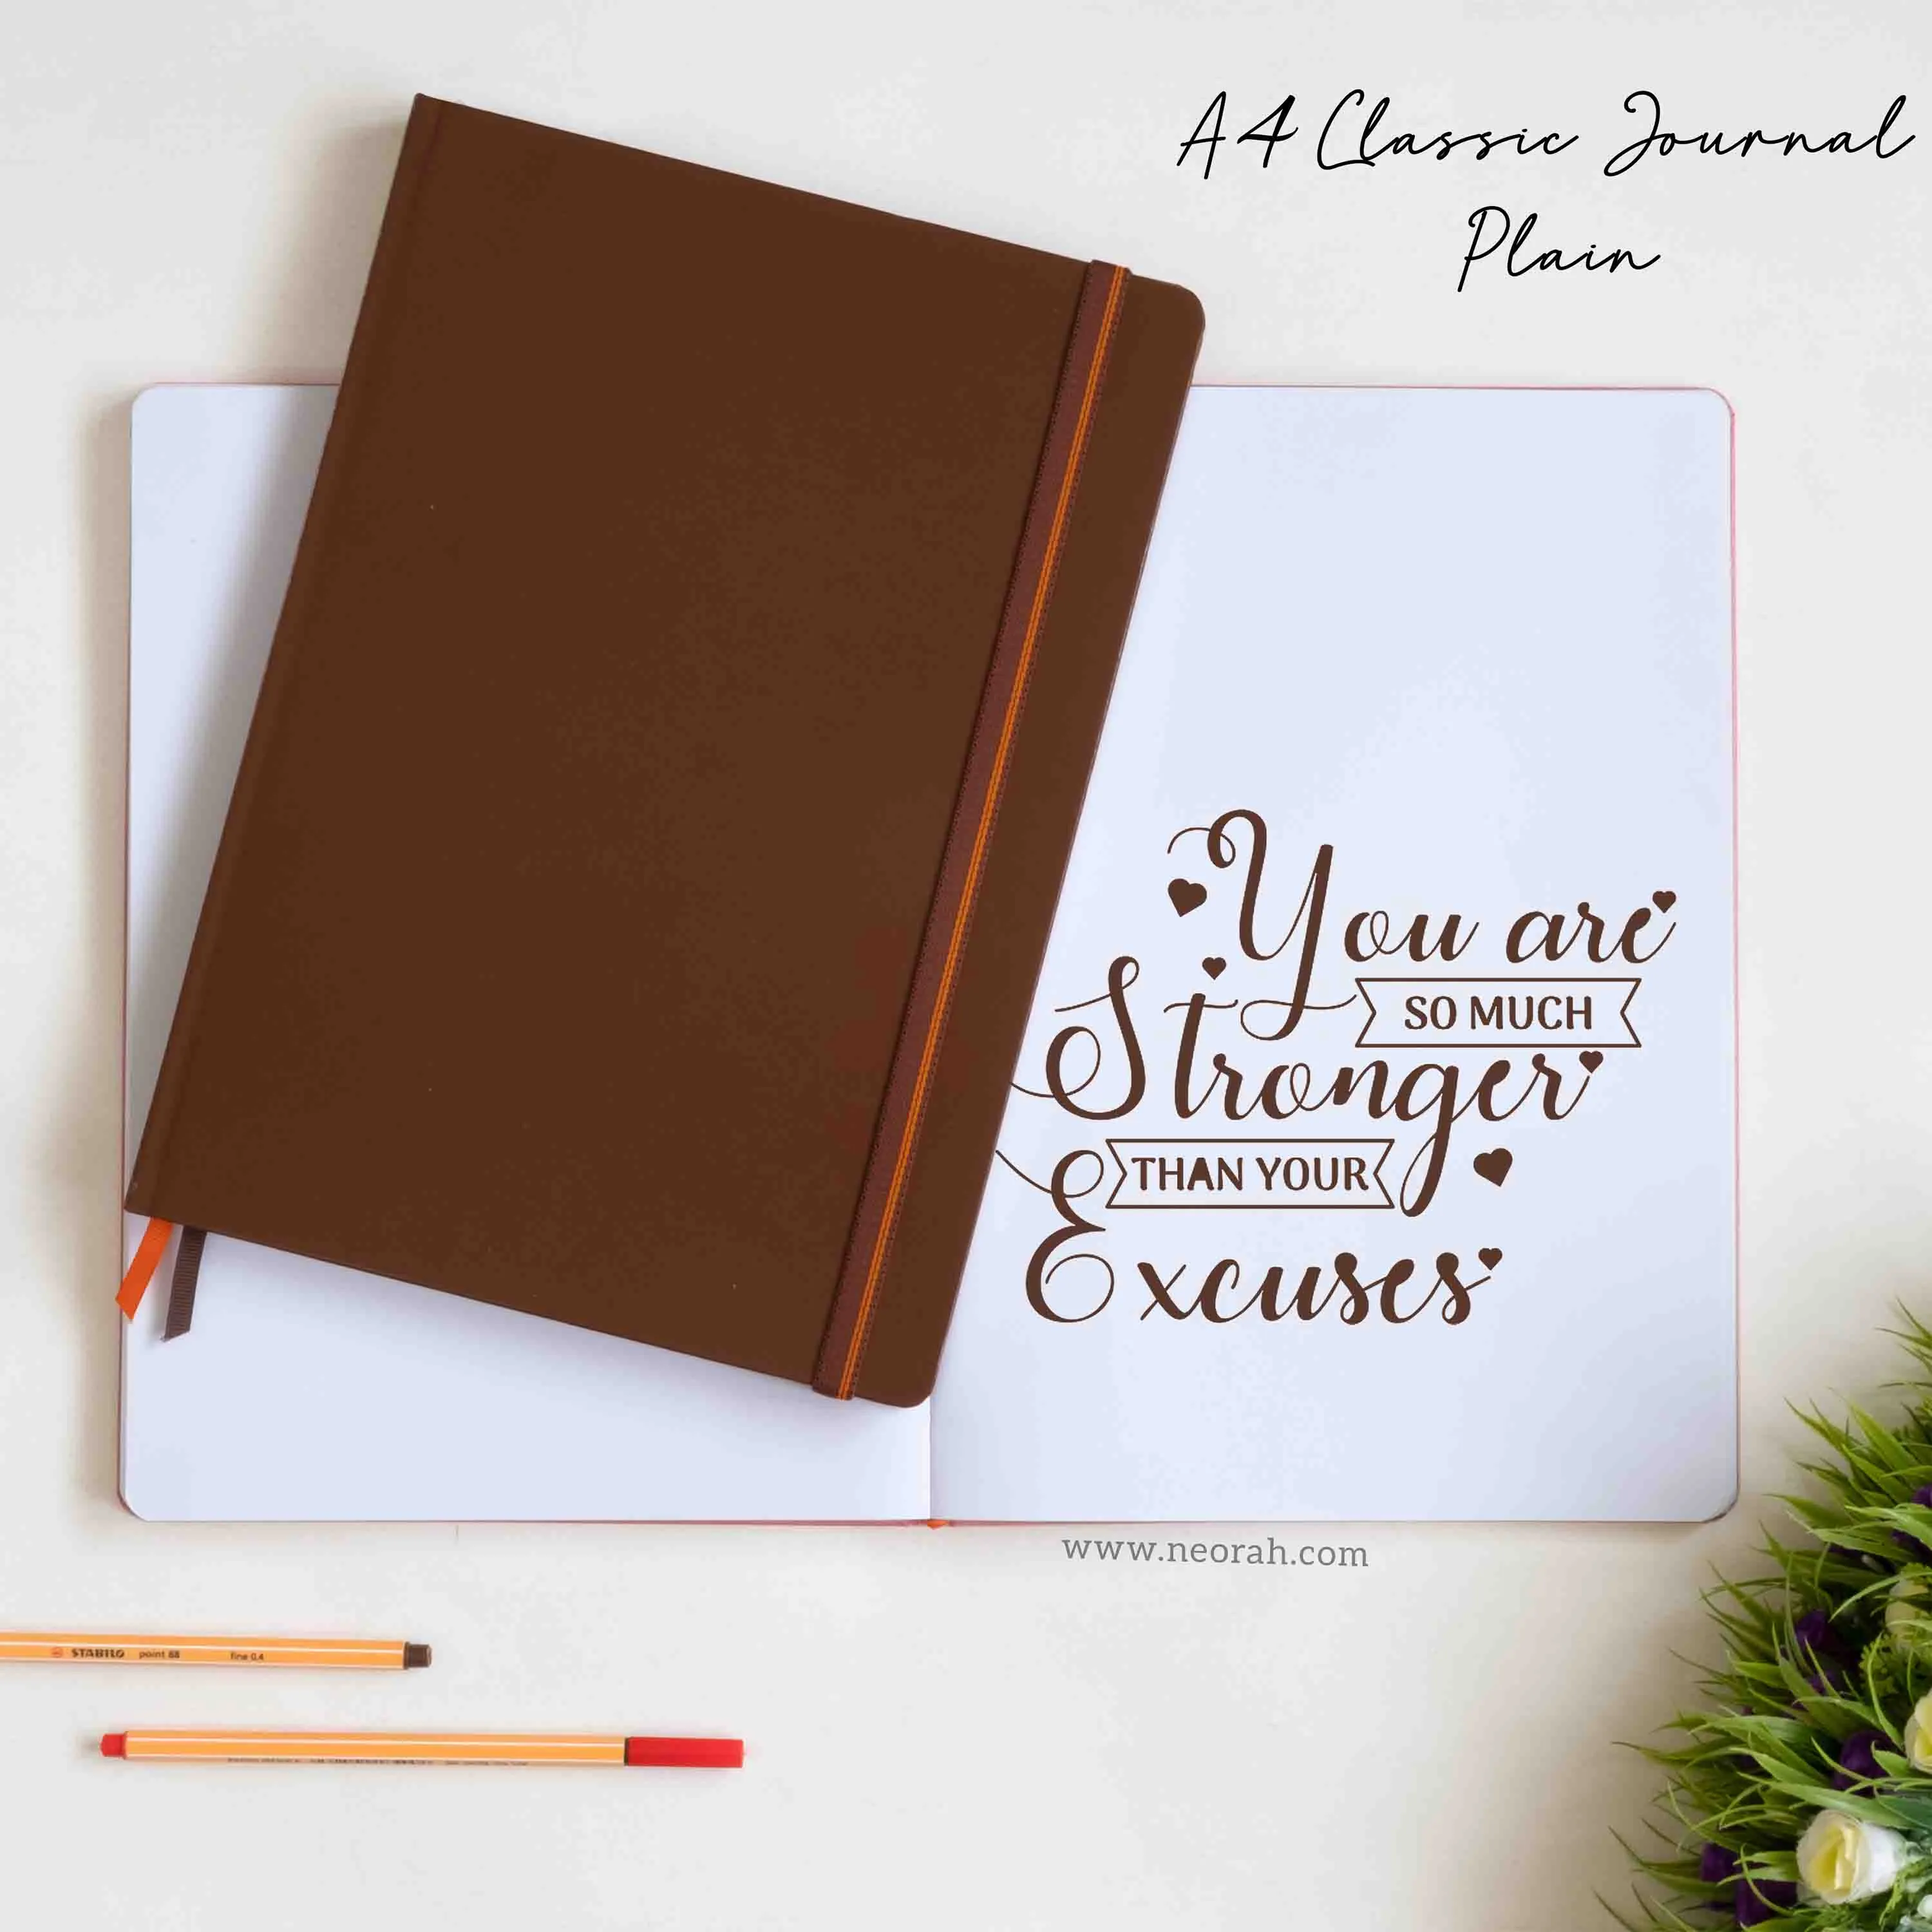 A4 Classic Journal
Plain
You are
SO MUCH
Stronger
THAN YOUR
Excuses
www.neorah.com
STABILO point 88 fine 0.4